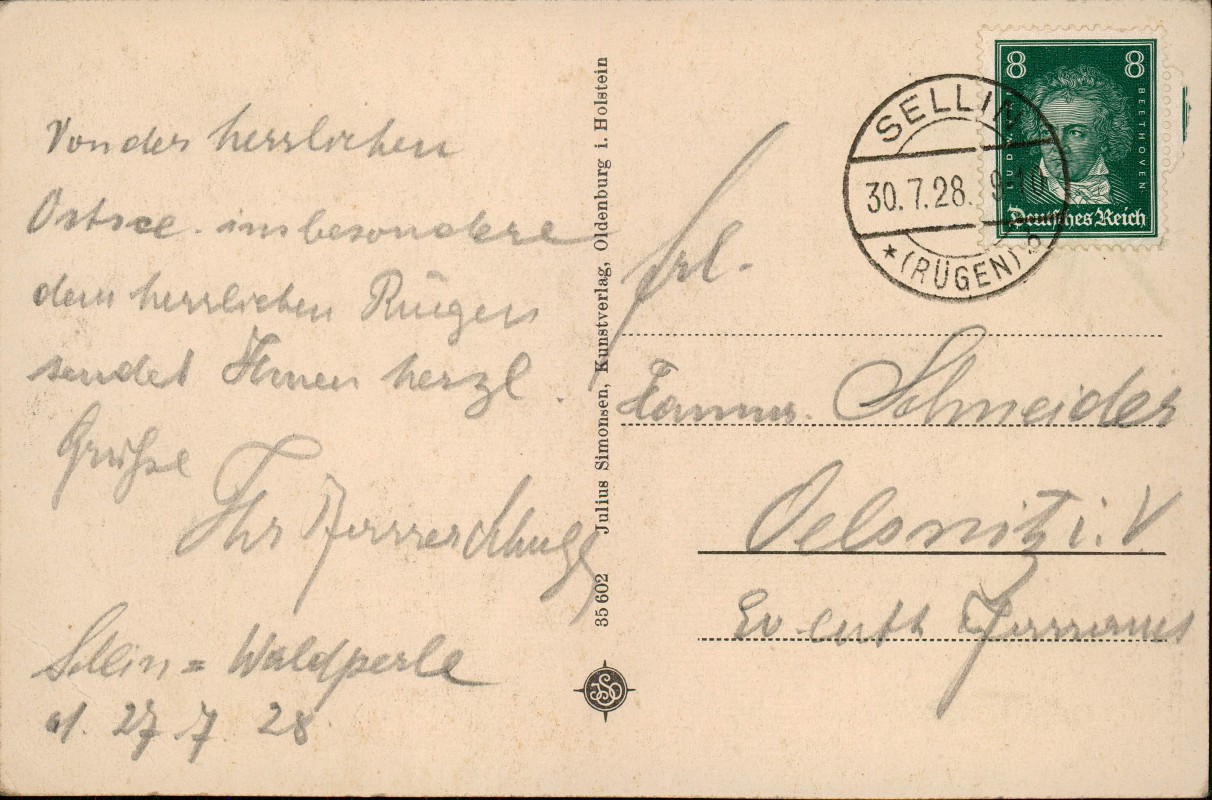 Von der herrlichen
Ostsee. insbesondere
dem herrlichen Rügen
sendet Ihnen herzl.
Grüße
Ihr Pfarrer
Sellin = Waldperle
d. 27. 7. 28.
35 602 Julius Simonsen, Kunstverlag, Oldenburg i. Holstein
SELLIN
30.7.28. 9-10
* (RÜGEN) b
8 8
LUDWIG VAN BEETHOVEN
Deutsches Reich
Frl.
Schneider
Oelsnitz i. V.
Ev luth Pfarramt